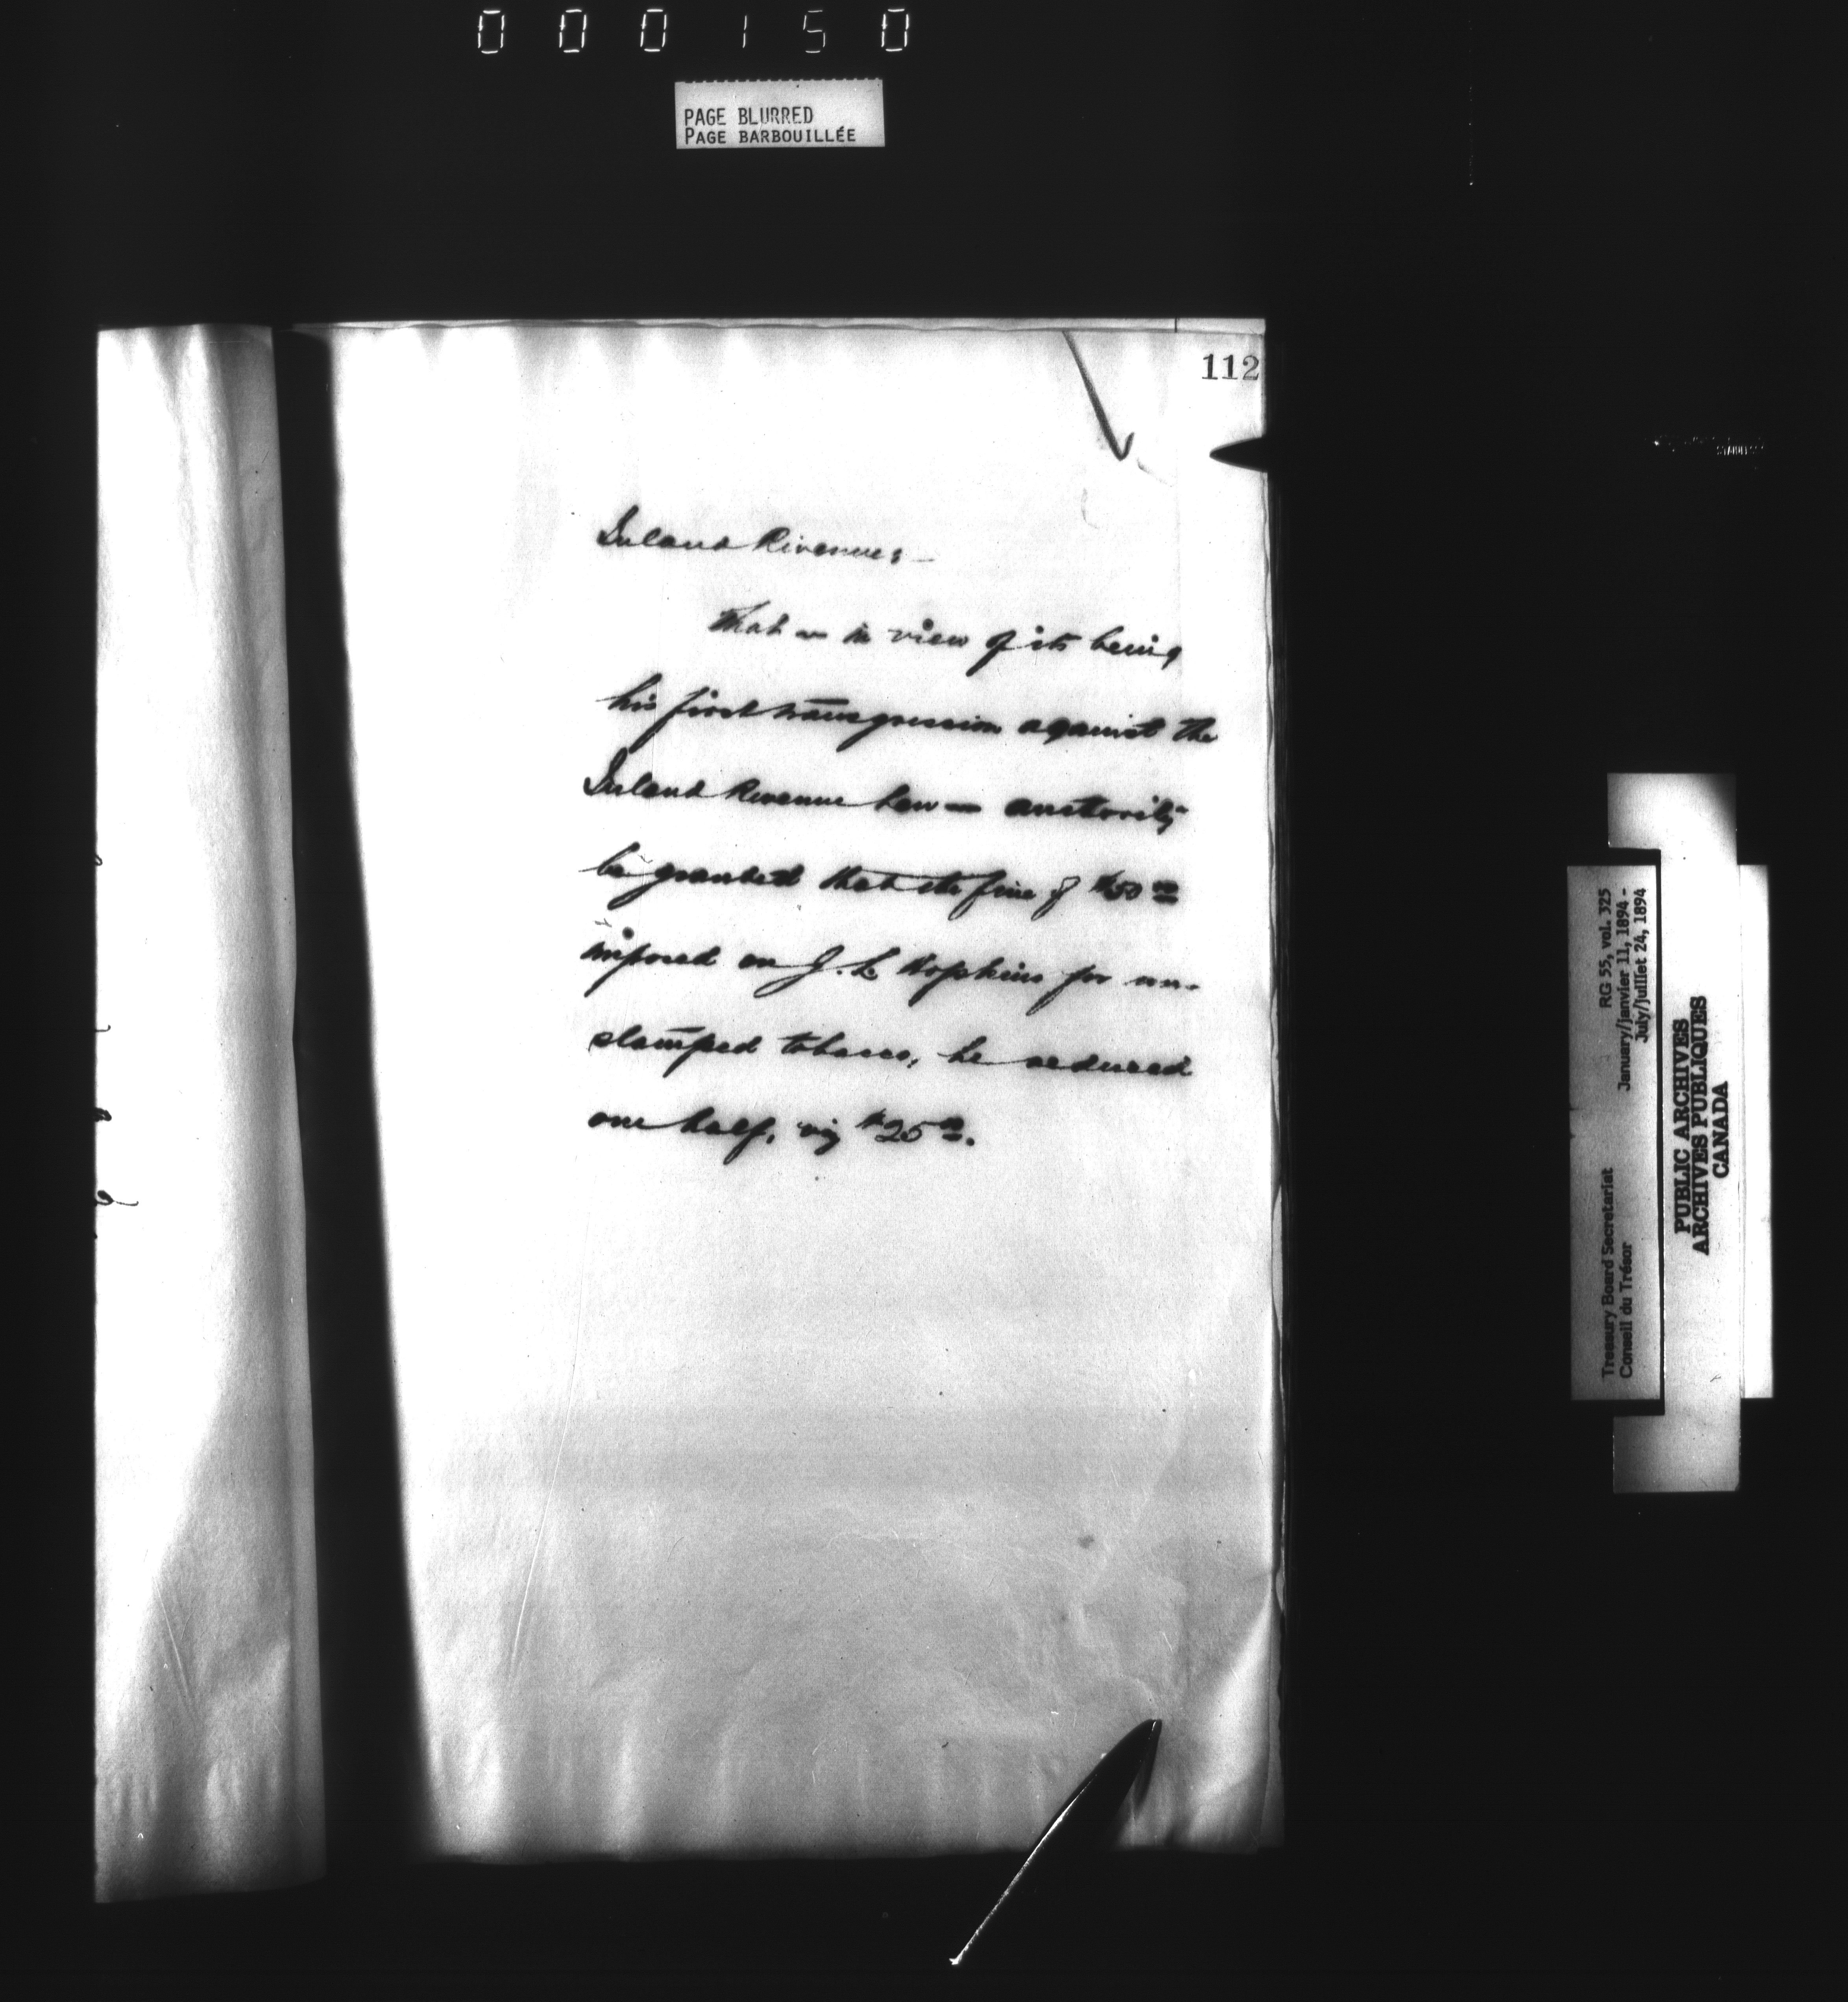 000150
PAGE BLURRED
PAGE BARBOUILLÉE
112
Inland Revenue:—
That — in view of its being
his first transgression against the
Inland Revenue Law — authority
be granted that the fine of $50 00
imposed on J. L. Hopkins for un-
stamped tobacco, be reduced
one half, viz $25 00.
Treasury Board Secretariat RG 55, vol. 325
Conseil du Trésor January/janvier 11, 1894 -
July/juillet 24, 1894
PUBLIC ARCHIVES
ARCHIVES PUBLIQUES
CANADA